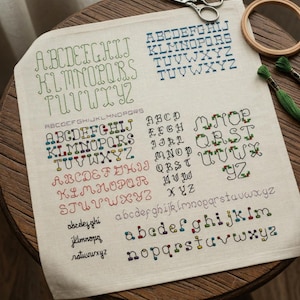 ABCDEFGHIJ
KLMNOPQRS
TUVWXYZ
ABCDEFGHIJ
KLMNOPQRS
TUVWXYZ
ABCDEFGHIJKLMNOPQRS
ABCDEFGHIJ
KLMNOPQRS
TUVWXYZ
ABCD
EFGH
IJKL
MNOP
QRST
UVW
XYZ
MNOP
QRST
UVWX
YZ
ABCDEFGHIJ
KLMNOPQR
STUVWXYZ
abcdefghi
jklmnopq
rstuvwxyz
abcdefghijklmnopqrstuvwxyz
abcdefghijklm
nopqrstuvwxyz